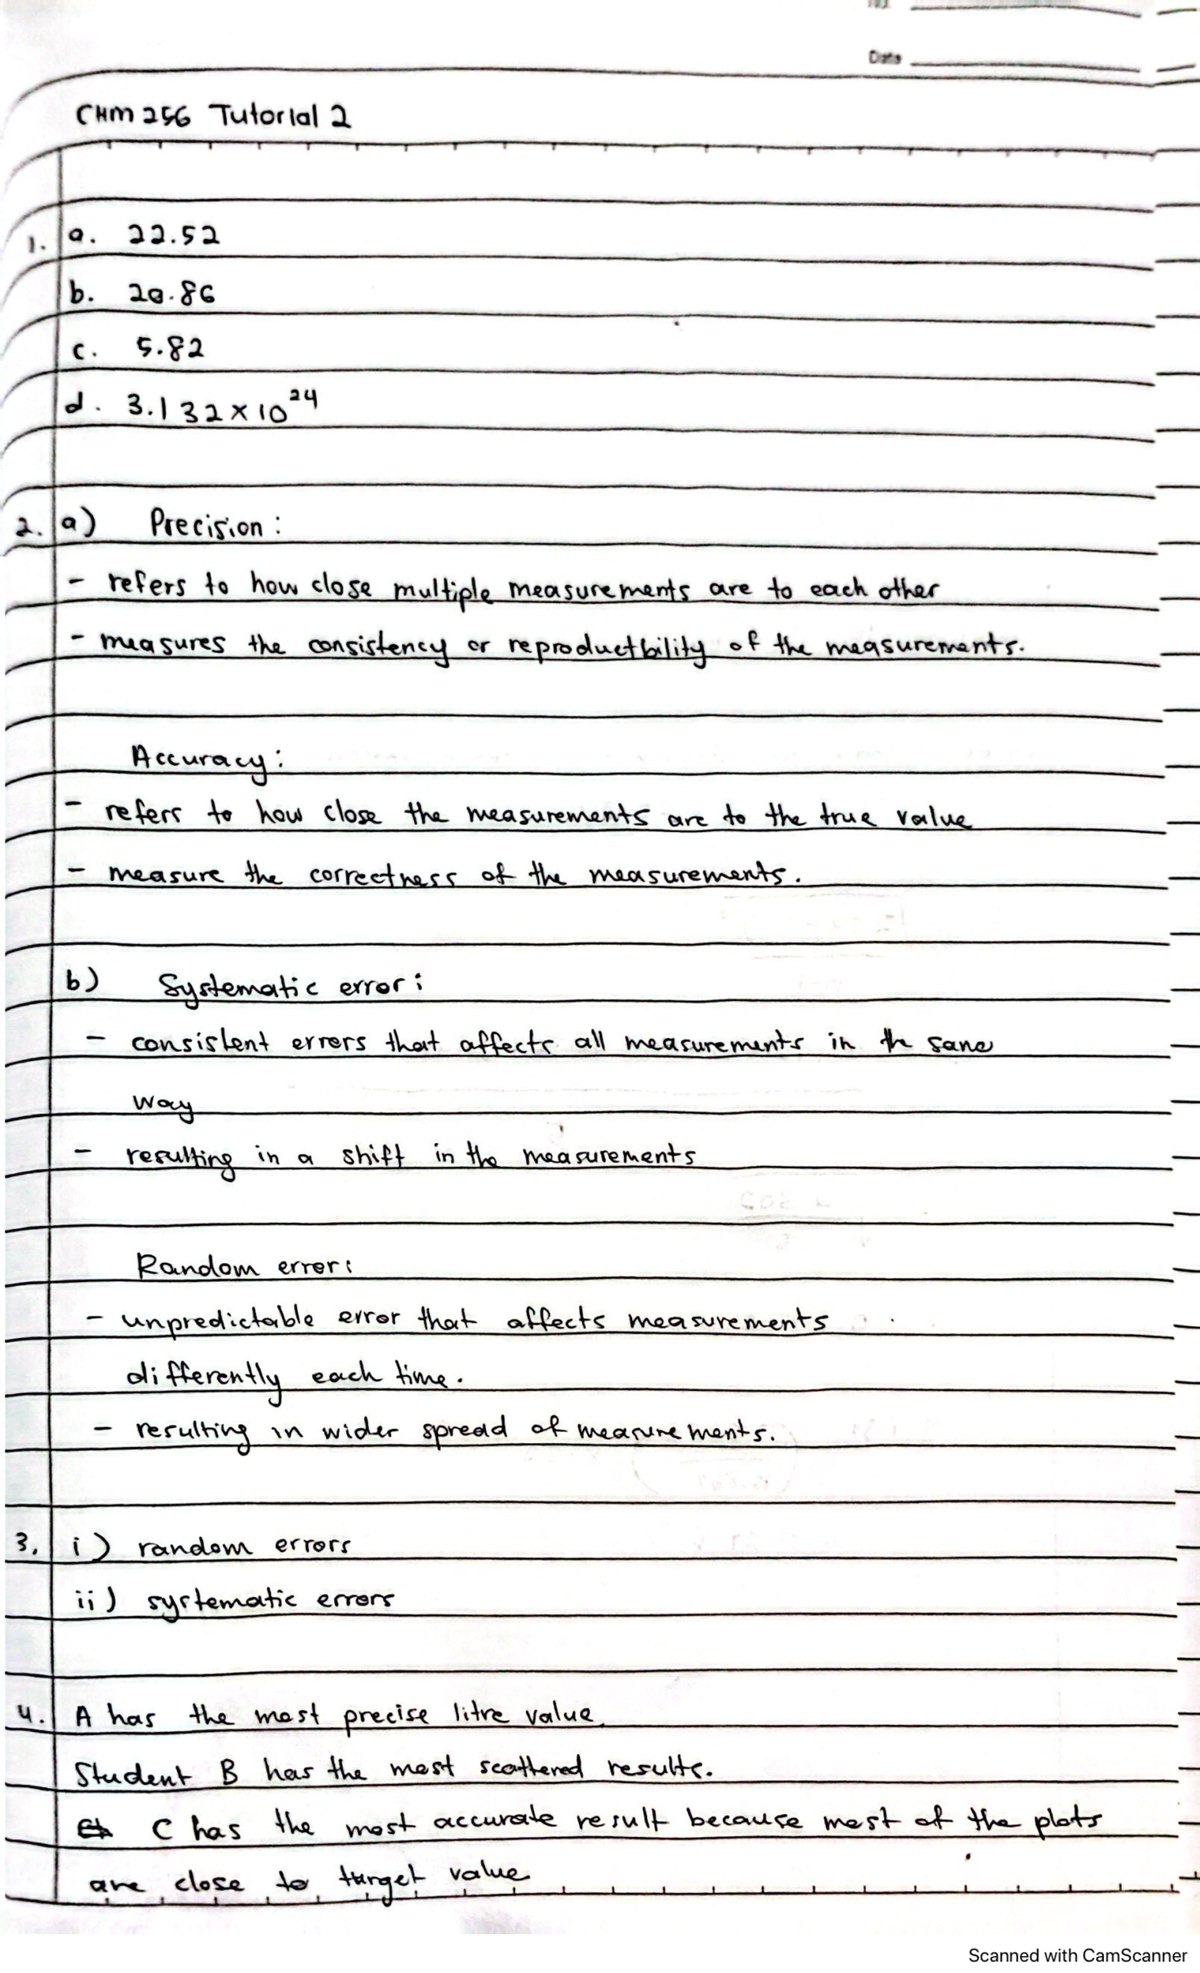 Date
CHM 256 Tutorial 2
1. a. 22.52
b. 20.86
c. 5.82
d. 3.132 × 10²⁴
2. a) Precision :
- refers to how close multiple measurements are to each other
- measures the consistency or reproductbility of the measurements.
Accuracy :
- refers to how close the measurements are to the true value
- measure the correctness of the measurements.
b) Systematic error :
- consistent errors that affects all measurements in the same
way
- resulting in a shift in the measurements
Random error :
- unpredictable error that affects measurements
differently each time.
- resulting in wider spread of measurements.
3. i) random errors
ii) systematic errors
4. A has the most precise litre value.
Student B has the most scattered results.
C has the most accurate result because most of the plots
are close to target value
Scanned with CamScanner